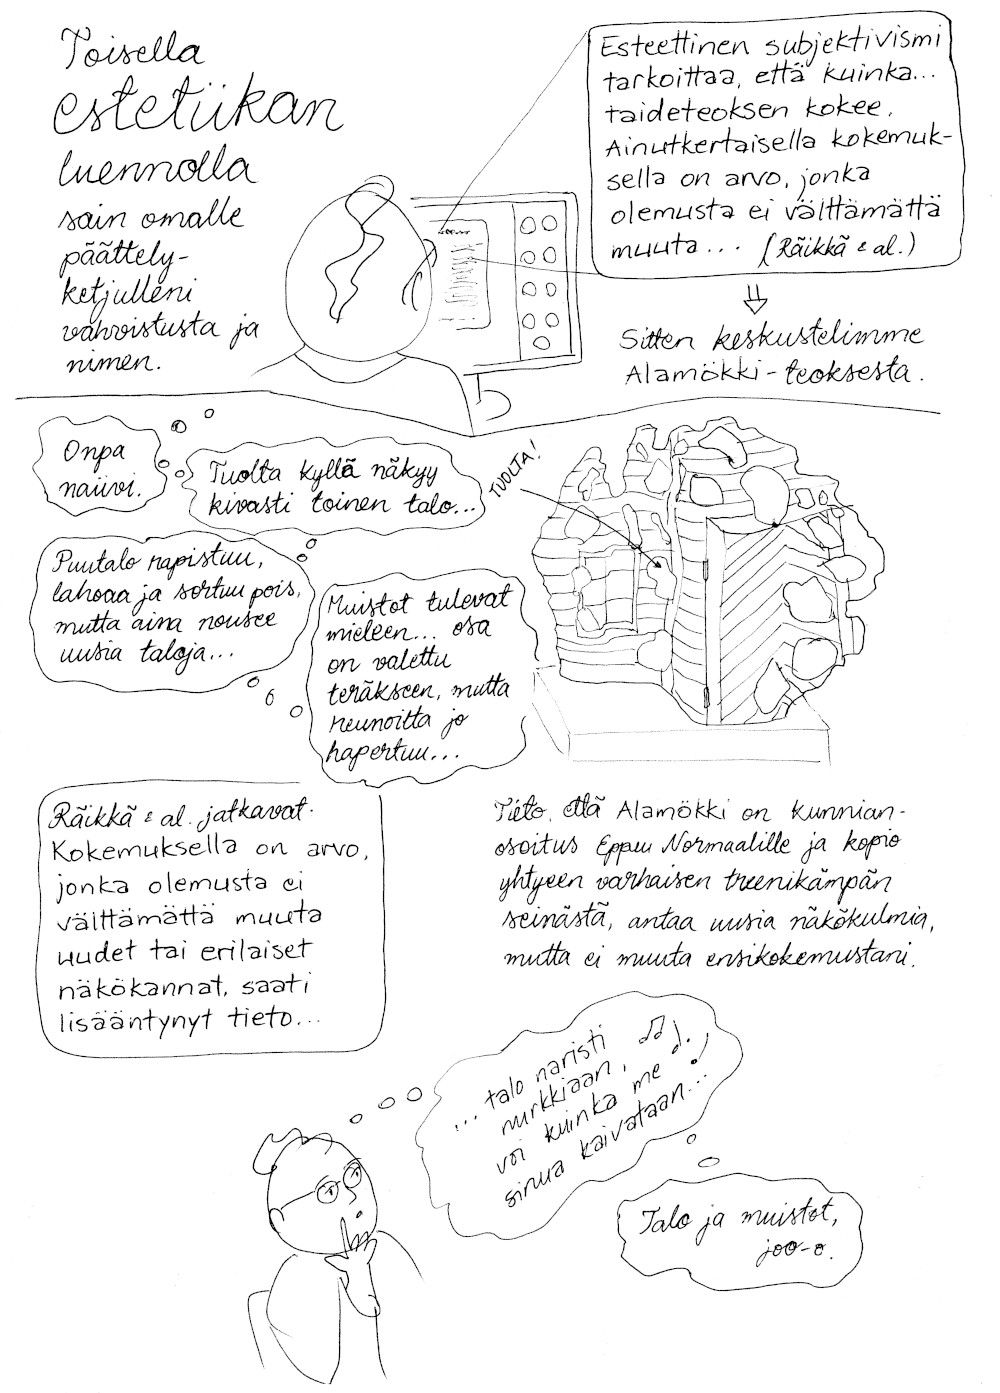 Toisella
estetiikan
luennolla
sain omalle
päättely-
ketjulleni
vahvistusta ja
nimen.
Esteettinen subjektivismi
tarkoittaa, että kuinka...
taideteoksen kokee.
Ainutkertaisella kokemuk-
sella on arvo, jonka
olemusta ei välttämättä
muuta... (Räikkä & al.)
Sitten keskustelimme
Alamökki-teoksesta.
Onpa
naiivi.
Tuolta kyllä näkyy
kivasti toinen talo...
TUOLTA!
Puutalo rapistuu,
lahoaa ja sortuu pois,
mutta aina nousee
uusia taloja...
Muistot tulevat
mieleen... osa
on valettu
teräkseen, mutta
reunoitta jo
hapertuu...
Räikkä & al. jatkavat.
Kokemuksella on arvo,
jonka olemusta ei
välttämättä muuta
uudet tai erilaiset
näkökannat, saati
lisääntynyt tieto...
Tieto, että Alamökki on kunnian-
osoitus Eppu Normaalille ja kopio
yhtyeen varhaisen treenikämpän
seinästä, antaa uusia näkökulmia,
mutta ei muuta ensikokemustani.
... talo naristi
nurkkiaan,
voi kuinka me
sinua kaivataan...
Talo ja muistot,
joo-o.